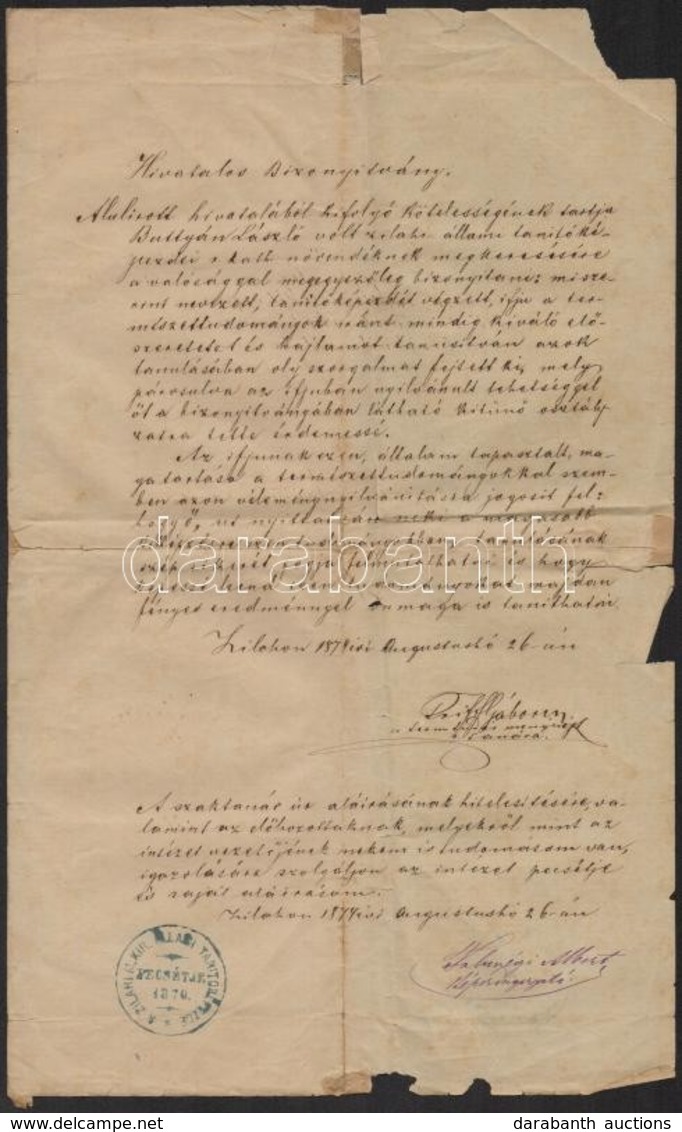 Hivatalos Bizonyitvány.
Alulirott hivatalából kifolyó kötelességének tartja
Battyán László volt zilahi állami tanitóké-
pezdei r. kath. növendéknek megkeresésére
a valósággal megegyezőleg bizonyitani: misze-
rint nevezett, tanitóképezdét végzett, ifju a ter-
mészettudományok iránt mindig kiváló elő-
szeretetet és hajlamot tanusitván azok
tanulásában oly szorgalmat fejtett ki, mely
párosulva az ifjuban nyilvánult tehetséggel
őt a bizonyitványában látható kitünő osztály-
zatra tette érdemessé.
Az ifjunak ezen, általam tapasztalt, ma-
gatartása a természettudományokkal szem-
ben azon véleménynyilvánitásra jogosit fel:
hogy, neki a
tanulásának
fogja felmutathatni és hogy
majdan
fényes eredménnyel önmaga is tanithatni.
Zilahon 1874 évi Augusztushó 26-án
Gábor
tanára.
A szaktanár úr aláirásának hitelesitésére, va-
lamint az előhozottaknak, melyekről mint az
intézet vezetőjének nekem is tudomásom van,
igazolására szolgáljon az intézet pecsétje
és saját aláirásom.
Zilahon 1874 évi Augusztushó 26-án
Albert,
A ZILAHI M. KIR. ÁLLAMI TANITÓKÉPEZDE
PECSÉTJE
1870.
darabanth
darabanth auctions